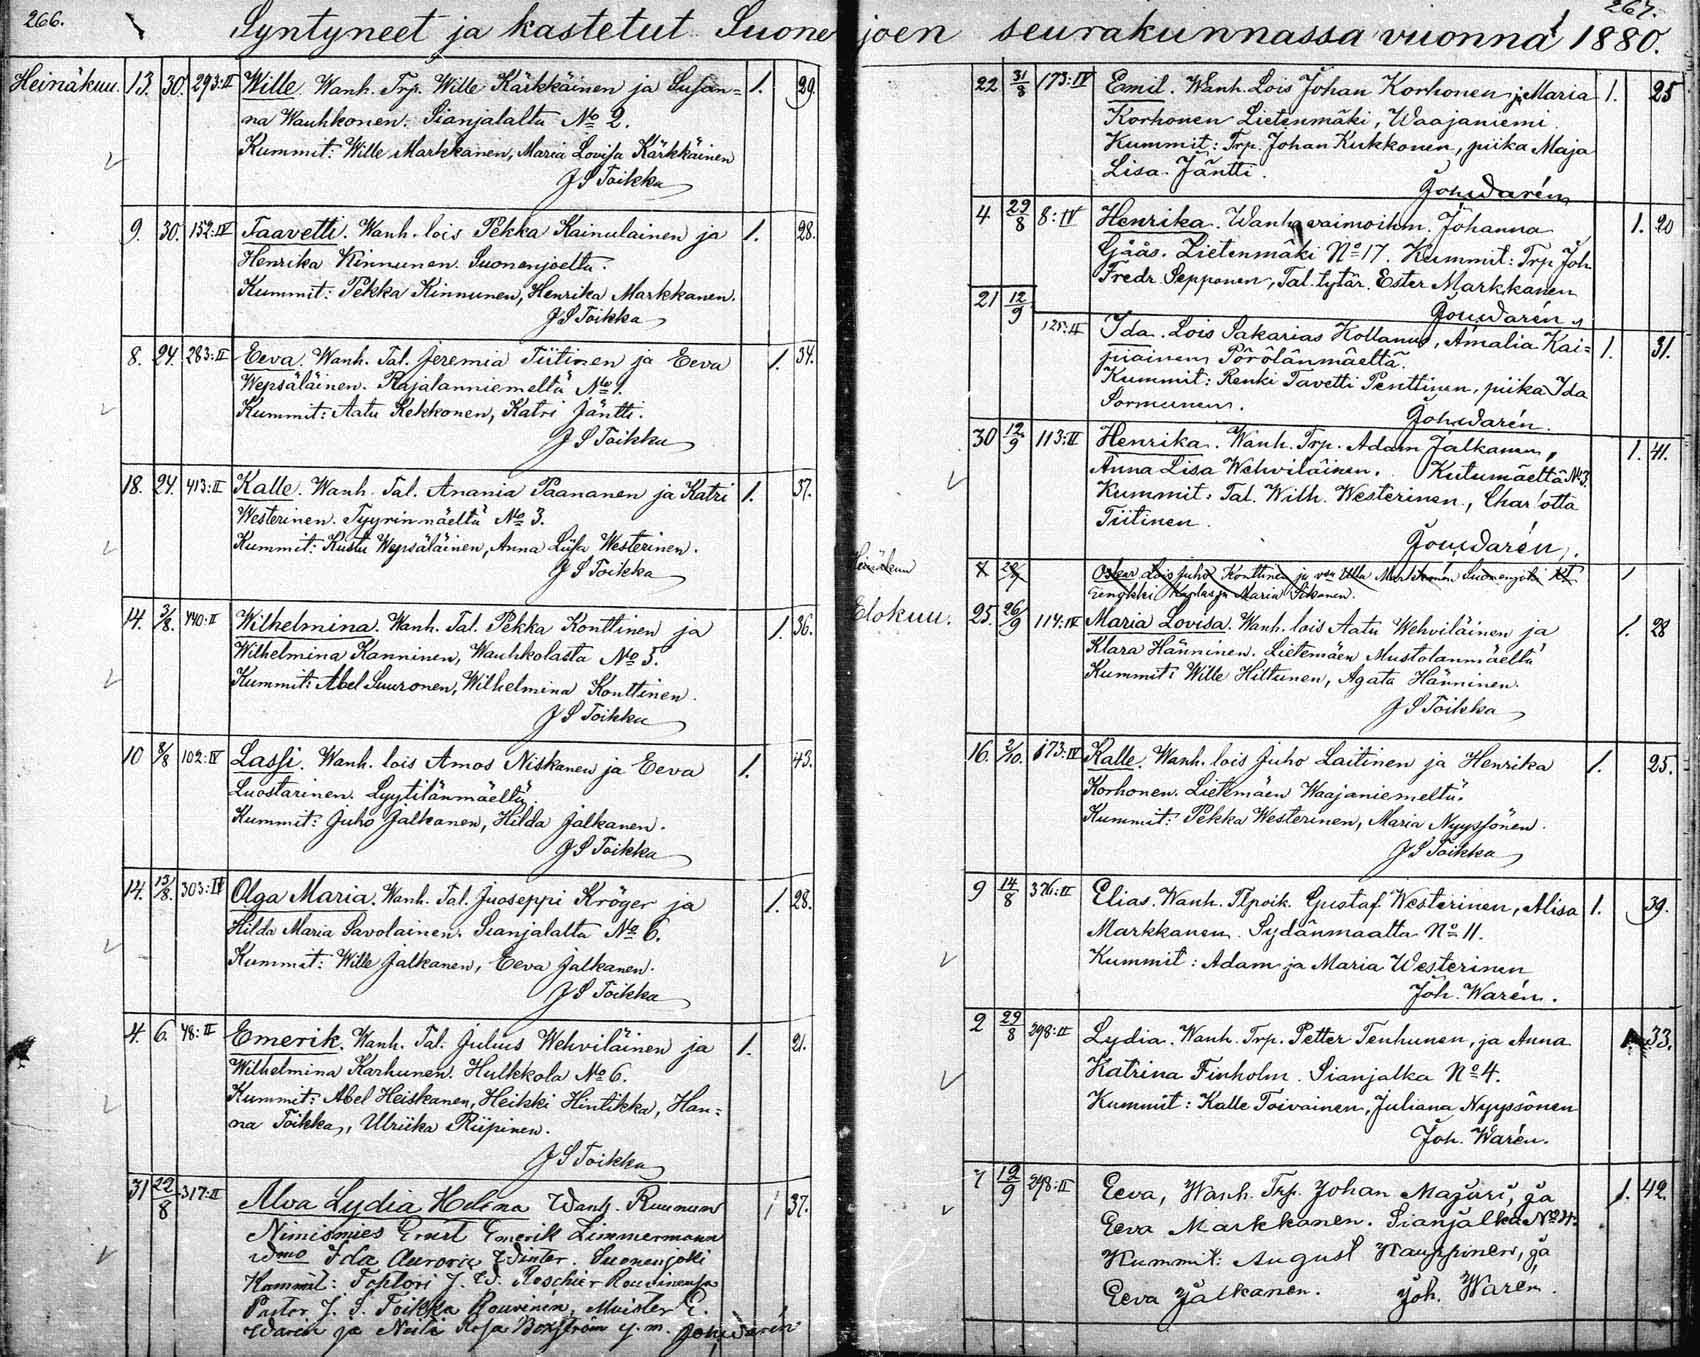 266.
Syntyneet ja kastetut Suone
Heinäkuu. 13. 30. 293:II Wille. Wanh. Trp. Wille Kärkkäinen ja Susan= 1. 29.
na Wauhkonen. Sianjalalta No 2.
Kummit: Wille Markkanen, Maria Lovisa Kärkkäinen
J S Toikka
9. 30. 152:IV Taavetti. Wanh. lois Pekka Kainulainen ja 1. 28.
Henrika Kinnunen. Suonenjoelta.
Kummit: Pekka Kinnunen, Henrika Markkanen.
J S Toikka
8. 24. 283:II Eeva. Wanh. Tal. Jeremia Tiitinen ja Eeva 1. 34.
Wepsäläinen. Rajalanniemeltä No 1.
Kummit: Aatu Kekkonen, Katri Jäntti.
J S Toikka
18. 24. 413:II Kalle. Wanh. Tal. Anania Paananen ja Katri 1. 37.
Westerinen. Tyyrinmäeltä No 3.
Kummit: Kustu Wepsäläinen, Anna Liisa Westerinen.
J S Toikka
14. 3/8. 440:II Wilhelmina. Wanh. Tal. Pekka Konttinen ja 1. 36.
Wilhelmina Kanninen, Wauhkolasta No 3.
Kummit: Abel Suuronen, Wilhelmina Konttinen.
J S Toikka
10 8/8 102:IV Lassi. Wanh. lois Amos Niskanen ja Eeva 1. 43.
Luostarinen. Lyytilänmäeltä
Kummit: Juho Jalkanen, Hilda Jalkanen.
J S Toikka
14. 15/8. 303:IV Olga Maria. Wanh. Tal. Juoseppi Kröger ja 1. 28.
Hilda Maria Savolainen. Sianjalalta No 6.
Kummit: Wille Jalkanen, Eeva Jalkanen.
J S Toikka
4. 6. 48:II Emerik. Wanh. Tal. Julius Wehviläinen ja 1. 21.
Wilhelmina Karhunen. Hulkkola No 6.
Kummit: Abel Heiskanen, Heikki Hintikka, Han=
na Toikka, Ulriika Riipinen.
J S Toikka
31 22/8 317:II Alva Lydia Helena Wanh. Ruunun 1 37.
Nimismies Ernst Emerik Zimmermann
Ida Aurora Winter. Suonenjoki
Kummit: Tohtori J. W. Roschier Rouvinensa
Pastor J. S. Toikka Rouvinen, Maister E.
Warén ja Neiti Rosa Boxström y.m. Joh. Warén
267.
joen seurakunnassa vuonna 1880.
22 31/8 173:IV Emil. Wanh. Lois Johan Korhonen ja Maria 1. 25
Korhonen Lietenmäki, Waajaniemi.
Kummit: Trp. Johan Kukkonen, piika Maja
Lisa Jäntti.
Joh Warén
4 29/8 8:IV Henrika. Wanh. vaimoihm. Johanna 1. 20
Gåås. Lietenmäki No 17. Kummit: Trp. Joh
Fredr. Sepponen, Tal. tytär. Ester Markkanen
Joh Warén
21 12/9 125:II Ida. Lois Sakarias Kollanus, Amalia Kai= 1. 31.
piainen Pörölänmäeltä.
Kummit: Renki Tavetti Penttinen, piika Ida
Sormunen.
Joh Warén.
30 12/9 113:II Henrika. Wanh. Trp. Adam Jalkanen, 1. 41.
Anna Lisa Wehviläinen. Kutumäeltä No 3.
Kummit: Tal. Wilh. Westerinen, Charlotta
Tiitinen.
Joh Warén.
Heinäkuu 8 Oskar Lois Juho Konttinen ja Ulla Suonenjoki
ja Maria Sikanen.
Elokuu. 25. 26/9 114:IV Maria Lovisa. Wanh. lois Aatu Wehviläinen ja 1. 28
Klara Hänninen. Lietemäen Mustolanmäeltä
Kummit: Wille Hiltunen, Agata Hänninen.
J S Toikka
16. 3/10. 173:IV Kalle. Wanh. lois Juho Laitinen ja Henrika 1. 25.
Korhonen. Lietemäen Waajaniemeltä.
Kummit: Pekka Westerinen, Maria Nyyssönen.
J S Toikka
9 14/8 376:II Elias. Wanh. Tlpoik. Gustaf Westerinen, Alisa 1. 39.
Markkanen. Sydänmaalta No 11.
Kummit: Adam ja Maria Westerinen
Joh. Warén.
2 29/8 398:II Lydia. Wanh. Trp. Petter Tenhunen, ja Anna 1. 33.
Katrina Finholm. Sianjalka No 4.
Kummit: Kalle Toivainen, Juliana Nyyssönen
Joh. Warén.
7 19/9 298:II Eeva, Wanh. Trp. Johan Majuri, ja 1. 42.
Eeva Markkanen. Sianjalka No 4.
Kummit: August Kauppinen, ja
Eeva Jalkanen. Joh. Warén.